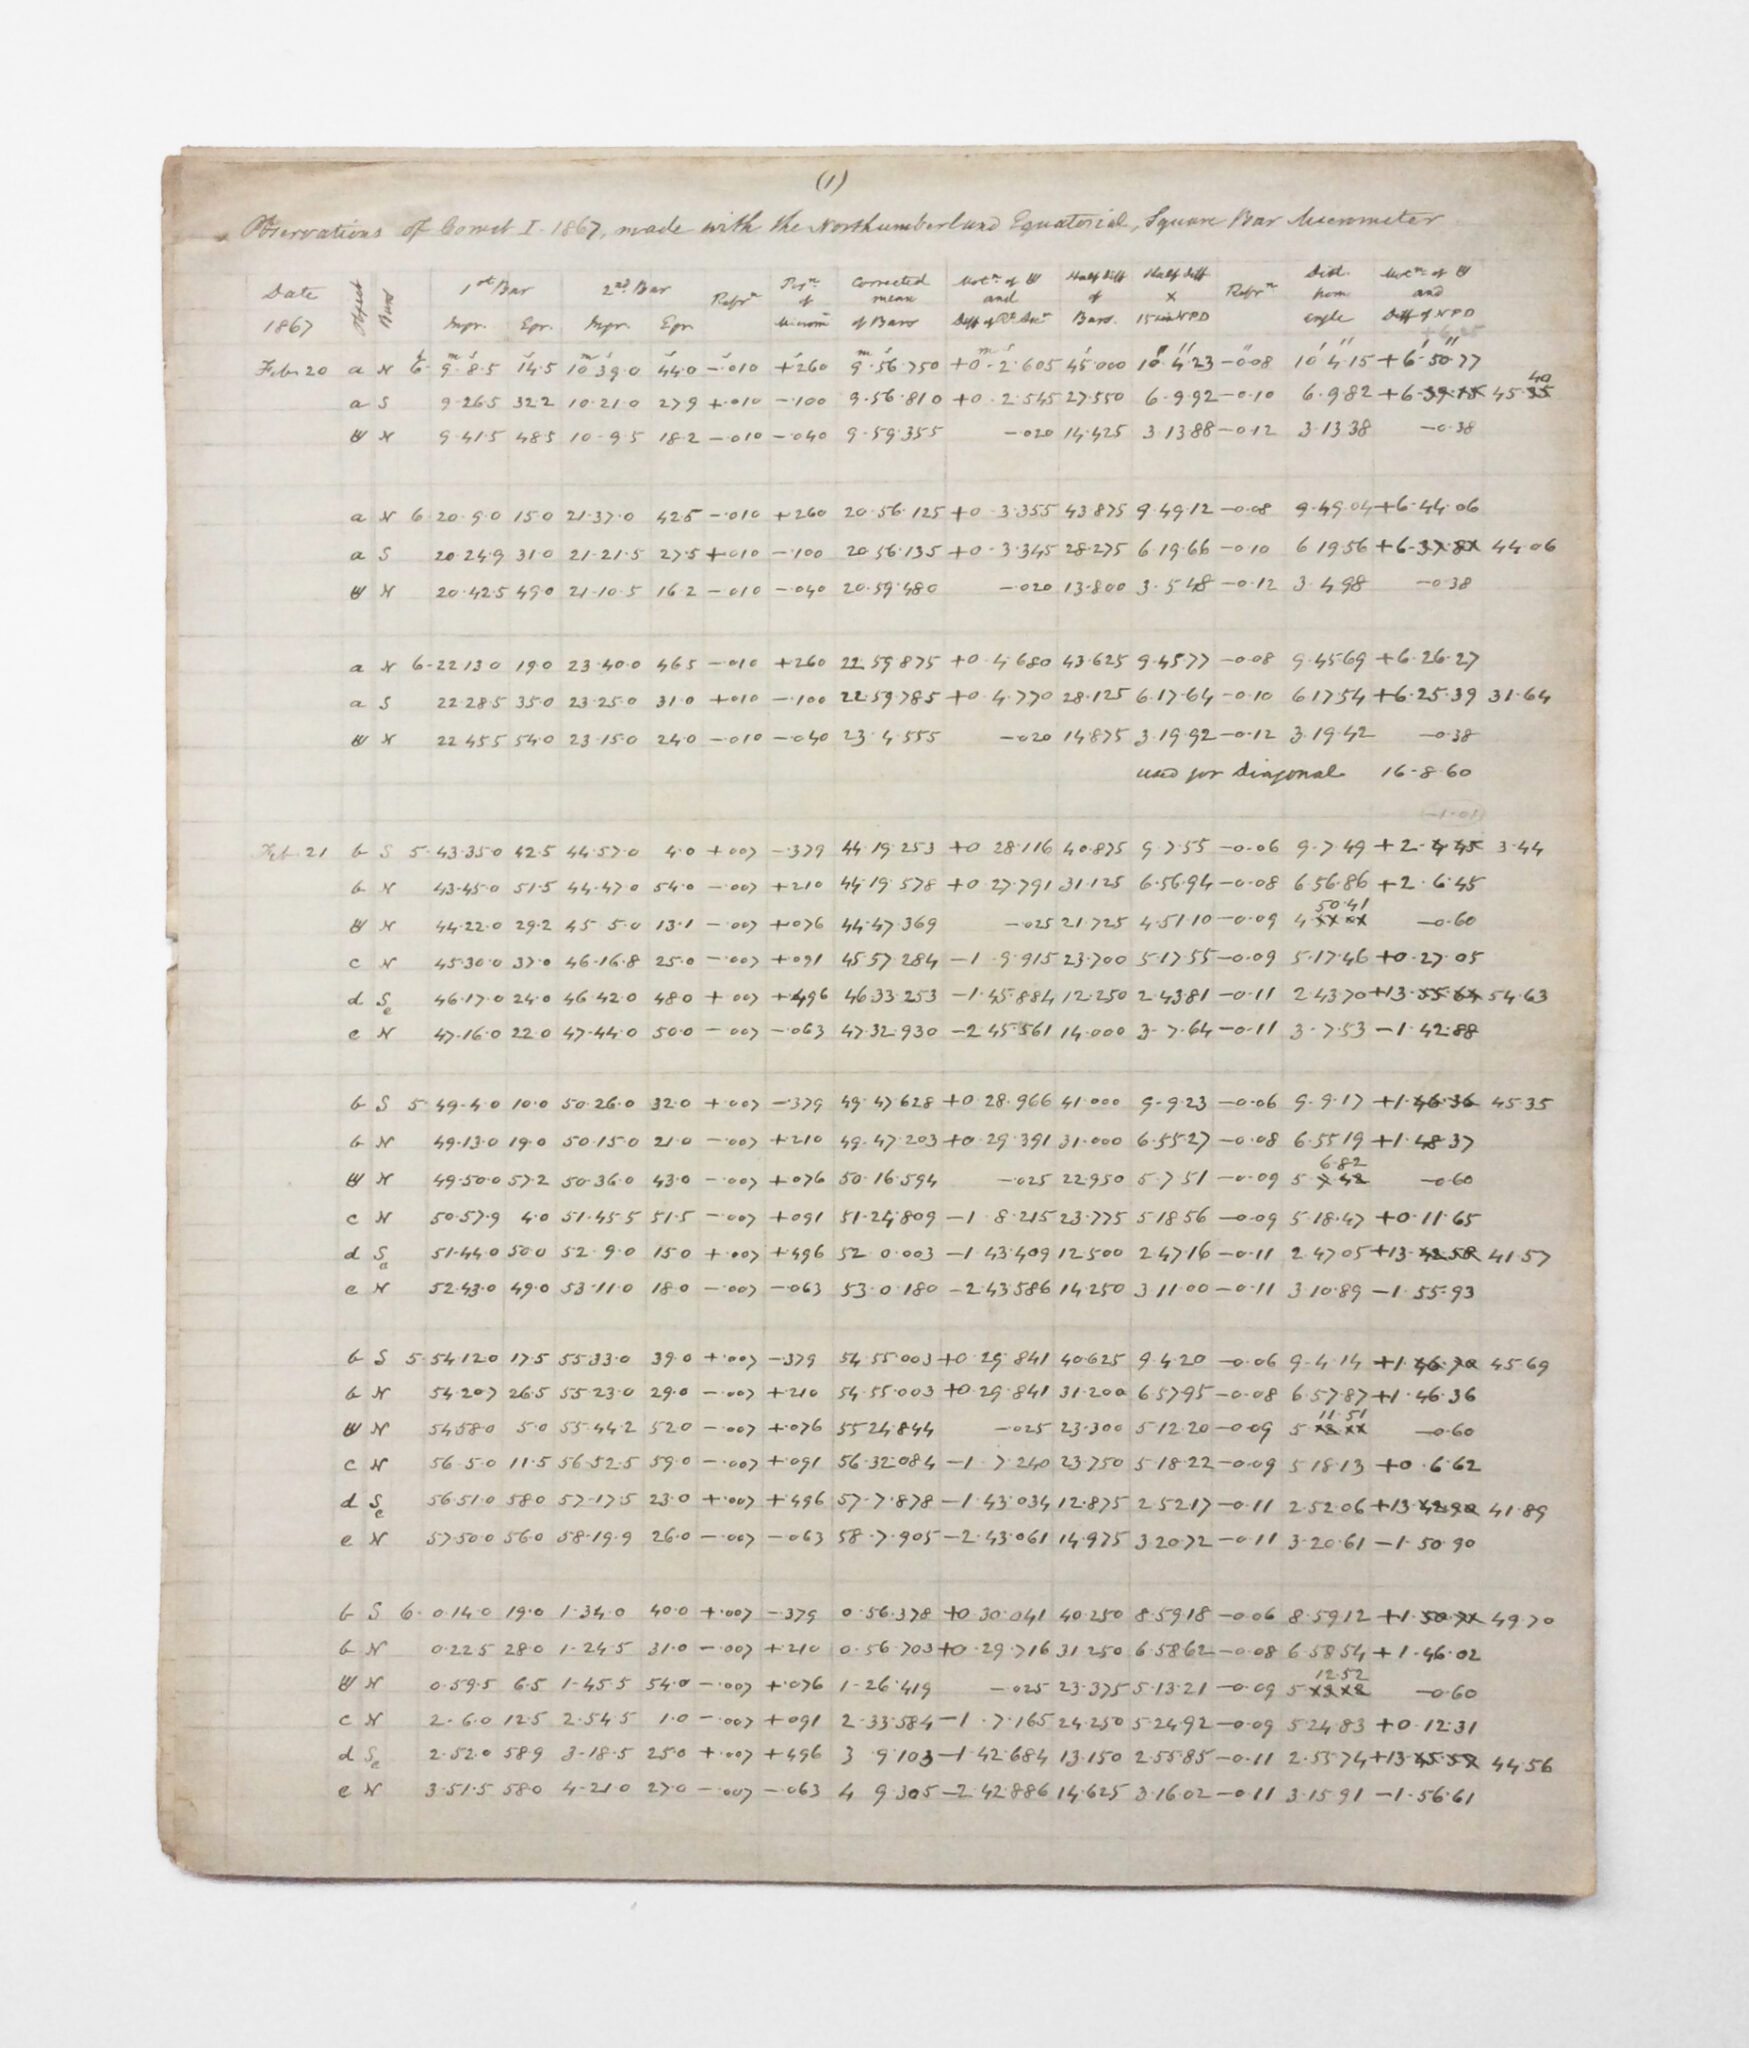 (1)
Observations of Comet I. 1867, made with the Northumberland Equatorial, Square Bar Micrometer
Date 1867 Object Bars 1st Bar Ingr. Egr. 2nd Bar Ingr. Egr. Refrn of Corrected mean of Bars Motn of ☄ and Half diff of Bars Half diff × 15 sin NPD Refrn Dist. from angle Motn of ☄ and Diff of NPD
Feb. 20 a N 6. 9. 8.5 14.5 10 39.0 44.0 -.010 +.260 9.56.750 +0. 2.605 45.000 10. 4.23 -0.08 10. 4.15 +6.50.77
a S 9.26.5 32.2 10.21.0 27.9 +.010 -.100 9.56.810 +0. 2.545 27.550 6. 9.92 -0.10 6. 9.82 +6. 45.40
☄ N 9.41.5 48.5 10. 9.5 18.2 -.010 -.040 9.59.355 -.020 14.425 3.13.88 -0.12 3.13.38 -0.38
a N 6. 20. 9.0 15.0 21.37.0 42.5 -.010 +.260 20.56.125 +0. 3.355 43.875 9.49.12 -0.08 9.49.04 +6.44.06
a S 20.24.9 31.0 21.21.5 27.5 +.010 -.100 20.56.135 +0. 3.345 28.275 6.19.66 -0.10 6.19.56 +6.37.81 44.06
☄ N 20.42.5 49.0 21.10.5 16.2 -.010 -.040 20.59.480 -.020 13.800 3. 5.48 -0.12 3. 4.98 -0.38
a N 6. 22.13.0 19.0 23.40.0 46.5 -.010 +.260 22.59.875 +0. 4.680 43.625 9.45.77 -0.08 9.45.69 +6.26.27
a S 22.28.5 35.0 23.25.0 31.0 +.010 -.100 22.59.785 +0. 4.770 28.125 6.17.64 -0.10 6.17.54 +6.25.39 31.64
☄ N 22.45.5 54.0 23.15.0 24.0 -.010 -.040 23. 4.555 -.020 14.875 3.19.92 -0.12 3.19.42 -0.38
used for Diagonal 16.8.60
Feb. 21 b S 5. 43.35.0 42.5 44.57.0 4.0 +.007 -.379 44.19.253 +0. 28.116 40.875 9. 7.55 -0.06 9. 7.49 +2. 4.45 3.44
b N 43.45.0 51.5 44.47.0 54.0 -.007 +.210 44.19.578 +0. 27.791 31.125 6.56.94 -0.08 6.56.86 +2. 6.45
☄ N 44.22.0 29.2 45. 5.0 13.1 -.007 +.076 44.47.369 -.025 21.725 4.51.10 -0.09 4. 50.41 -0.60
c N 45.30.0 37.0 46.16.8 25.0 -.007 +.091 45.57.284 -1. 9.915 23.700 5.17.55 -0.09 5.17.46 +0.27.05
d Se 46.17.0 24.0 46.42.0 48.0 +.007 +.496 46.33.253 -1.45.884 12.250 2.43.81 -0.11 2.43.70 +13.55.64 54.63
e N 47.16.0 22.0 47.44.0 50.0 -.007 -.063 47.32.930 -2.45.561 14.000 3. 7.64 -0.11 3. 7.53 -1.42.88
b S 5. 49.4.0 10.0 50.26.0 32.0 +.007 -.379 49.47.628 +0. 28.966 41.000 9. 9.23 -0.06 9. 9.17 +1.46.36 45.35
b N 49.13.0 19.0 50.15.0 21.0 -.007 +.210 49.47.203 +0. 29.391 31.000 6.55.27 -0.08 6.55.19 +1.48.37
☄ N 49.50.0 57.2 50.36.0 43.0 -.007 +.076 50.16.594 -.025 22.950 5. 7.51 -0.09 5. 7.42 6.82 -0.60
c N 50.57.9 4.0 51.45.5 51.5 -.007 +.091 51.24.809 -1. 8.215 23.775 5.18.56 -0.09 5.18.47 +0.11.65
d Se 51.44.0 50.0 52. 9.0 15.0 +.007 +.496 52. 0.003 -1.43.409 12.500 2.47.16 -0.11 2.47.05 +13.42.58 41.57
e N 52.43.0 49.0 53.11.0 18.0 -.007 -.063 53. 0.180 -2.43.586 14.250 3.11.00 -0.11 3.10.89 -1.55.93
b S 5. 54.12.0 17.5 55.33.0 39.0 +.007 -.379 54.55.003 +0. 29.841 40.625 9. 4.20 -0.06 9. 4.14 +1.46.70 45.69
b N 54.20.7 26.5 55.23.0 29.0 -.007 +.210 54.55.003 +0.29.841 31.200 6.57.95 -0.08 6.57.87 +1.46.36
☄ N 54.58.0 5.0 55.44.2 52.0 -.007 +.076 55.24.844 -.025 23.300 5.12.20 -0.09 5. 11.51 -0.60
c N 56. 5.0 11.5 56.52.5 59.0 -.007 +.091 56.32.084 -1. 7.240 23.750 5.18.22 -0.09 5.18.13 +0. 6.62
d Se 56.51.0 58.0 57.17.5 23.0 +.007 +.496 57. 7.878 -1.43.034 12.875 2.52.17 -0.11 2.52.06 +13.42.90 41.89
e N 57.50.0 56.0 58.19.9 26.0 -.007 -.063 58. 7.905 -2.43.061 14.975 3.20.72 -0.11 3.20.61 -1.50.90
b S 6. 0.14.0 19.0 1.34.0 40.0 +.007 -.379 0.56.378 +0.30.041 40.250 8.59.18 -0.06 8.59.12 +1.50.71 49.70
b N 0.22.5 28.0 1.24.5 31.0 -.007 +.210 0.56.703 +0.29.716 31.250 6.58.62 -0.08 6.58.54 +1.46.02
☄ N 0.59.5 6.5 1.45.5 54.0 -.007 +.076 1.26.419 -.025 23.375 5.13.21 -0.09 5. 12.52 -0.60
c N 2. 6.0 12.5 2.54.5 1.0 -.007 +.091 2.33.584 -1. 7.165 24.250 5.24.92 -0.09 5.24.83 +0.12.31
d Se 2.52.0 58.9 3.18.5 25.0 +.007 +.496 3 9.103 -1.42.684 13.150 2.55.85 -0.11 2.55.74 +13.45.57 44.56
e N 3.51.5 58.0 4.21.0 27.0 -.007 -.063 4 9.305 -2.42.886 14.625 3.16.02 -0.11 3.15.91 -1.56.61